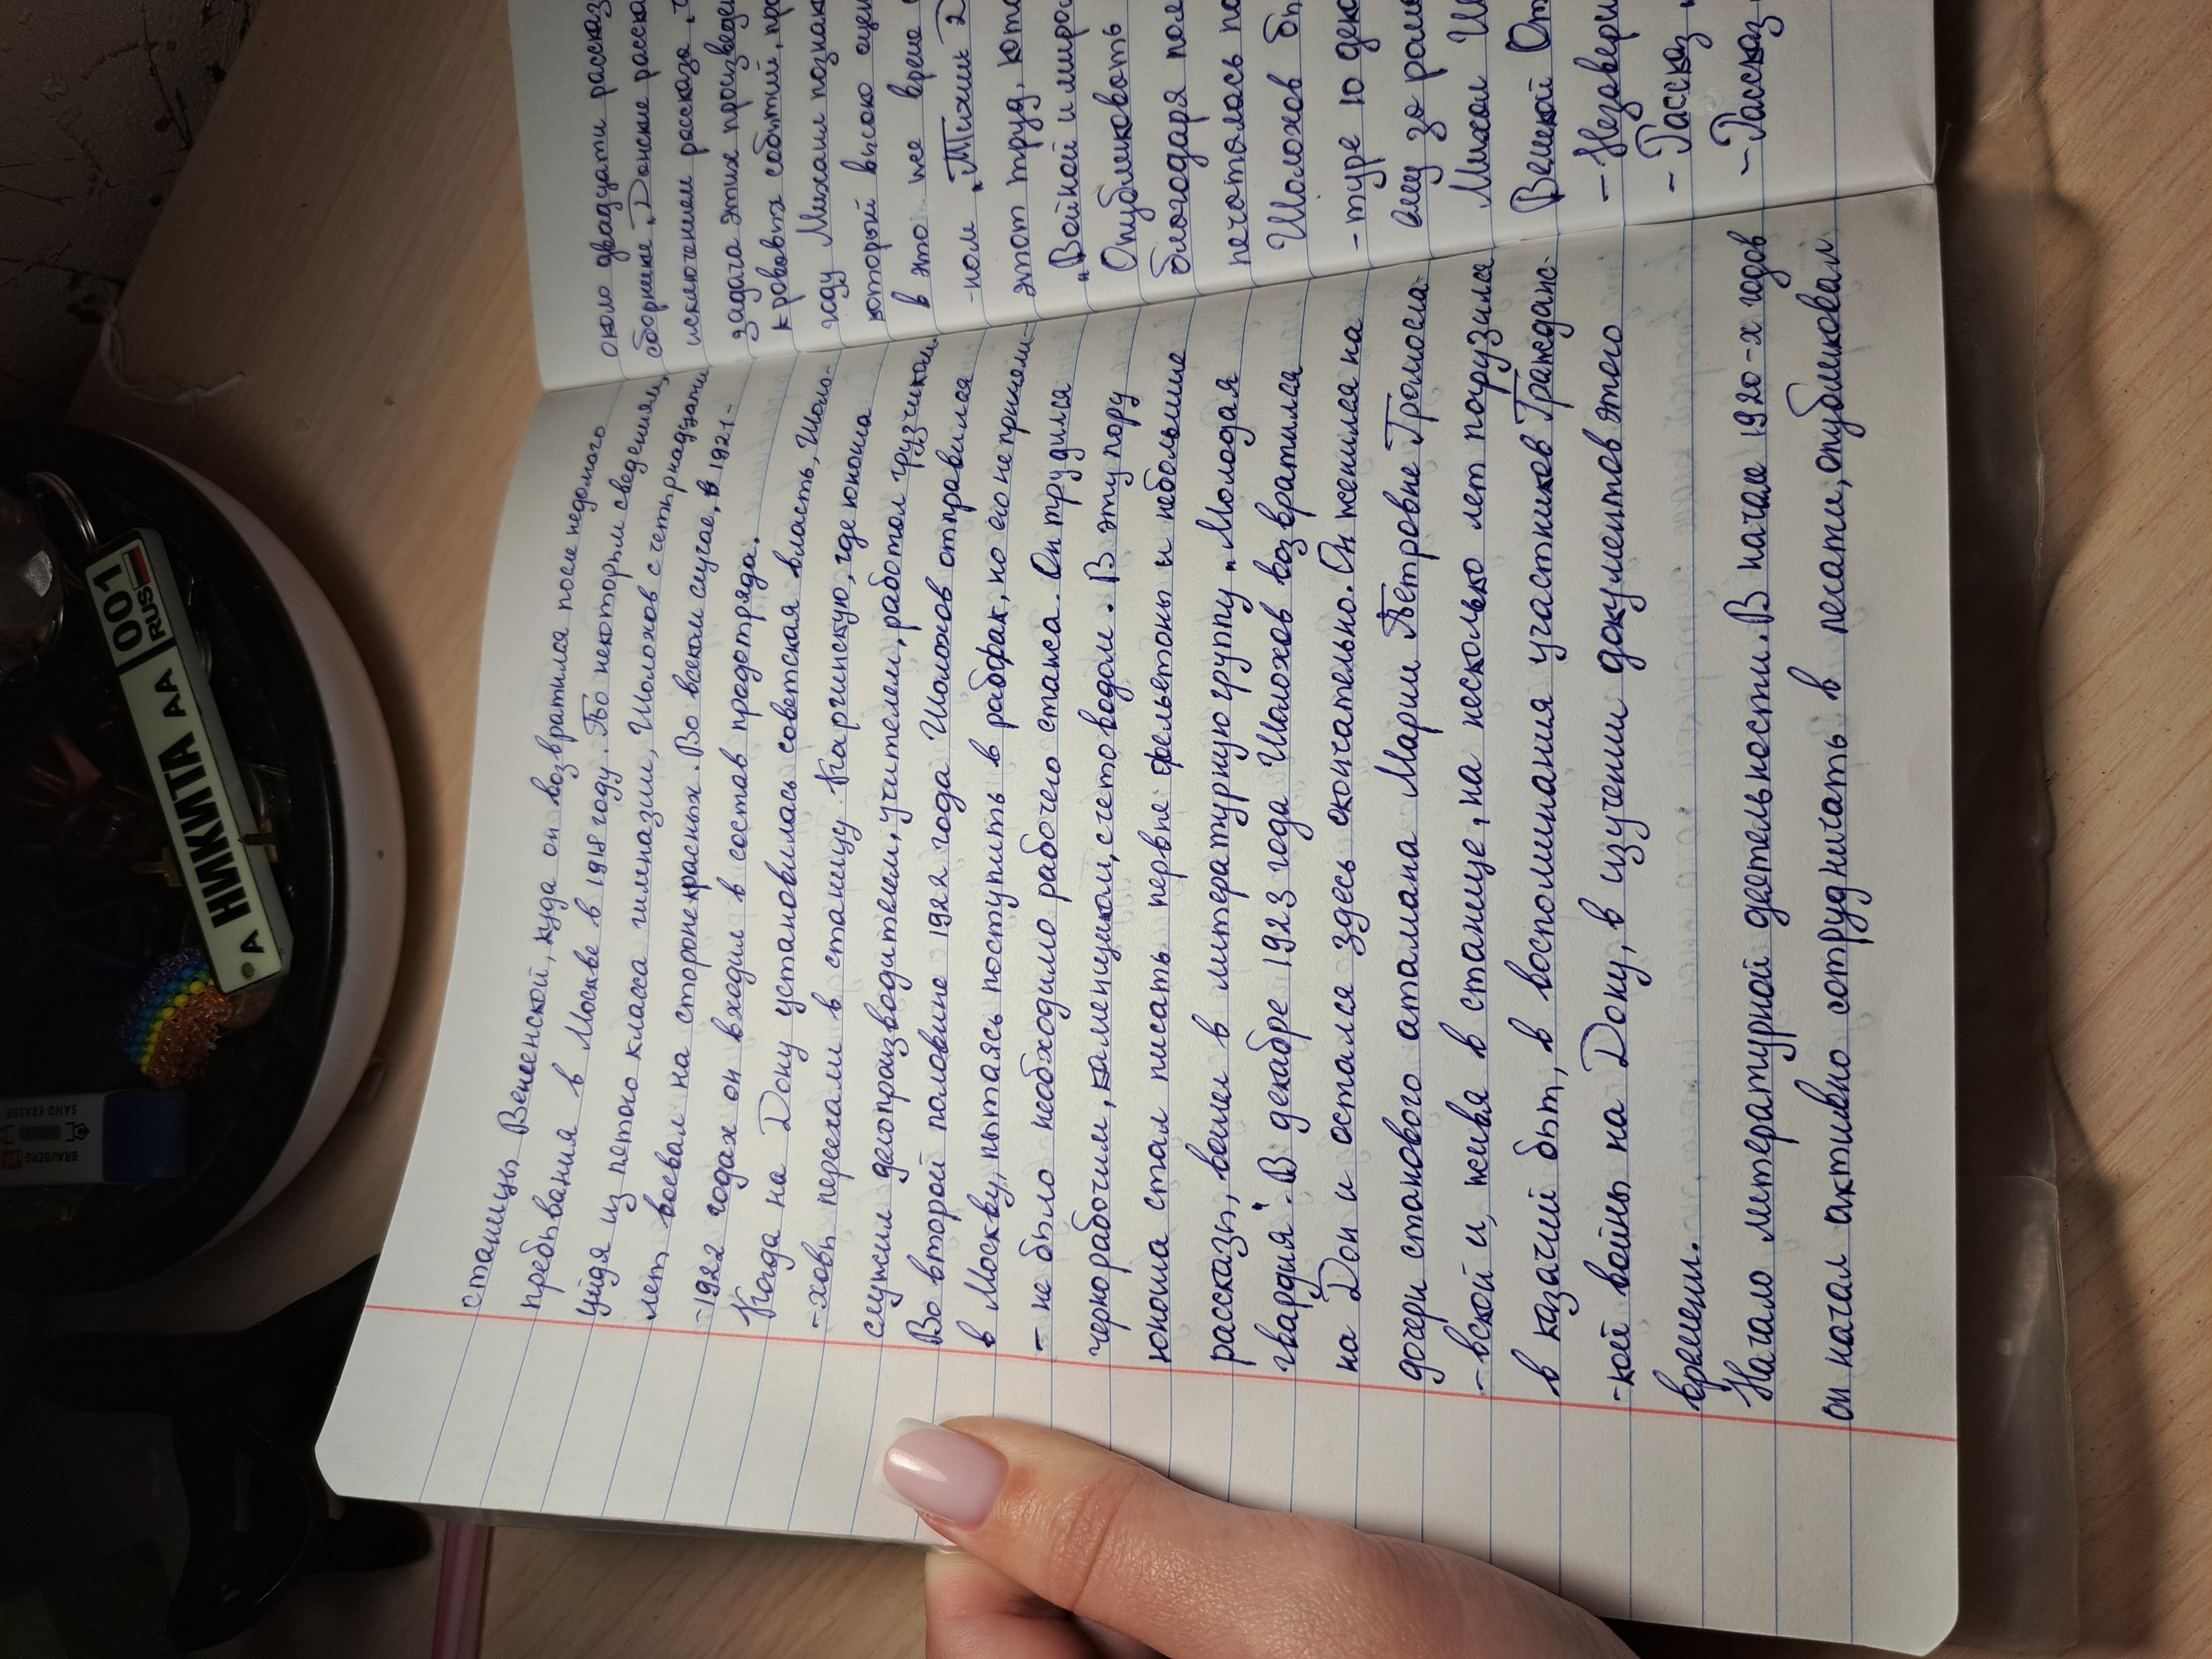 станицы Вешенской, куда он возвратился после недолгого
пребывания в Москве в 1918 году. По некоторым сведениям,
уйдя из пятого класса гимназии, Шолохов с четырнадцати
лет воевал на стороне красных. Во всяком случае, в 1921-
-1922 годах он входил в состав продотряда.
Когда на Дону установилась советская власть, Шоло-
-ховы переехали в станицу Каргинскую, где юноша
служил делопроизводителем, учителем, работал грузчиком
Во второй половине 1922 года Шолохов отправился
в Москву, пытаясь поступить в рабфак, но его не приняли-
- не было необходимо рабочего стажа. Он трудился
чернорабочим, каменщиком, счетоводом. В эту пору
юноша стал писать первые фельетоны и небольшие
рассказы, вошел в литературную группу „Молодая
гвардия". В декабре 1923 года Шолохов возвратился
на Дон и остался здесь окончательно. Он женился на
дочери станового атамана Марии Петровне Громосла-
-вской и, живя в станице, на несколько лет погрузился
в казачий быт, в воспоминания участников Гражданс-
-кой войны на Дону, в изучении документов этого
времени.
Начало литературной деятельности. В начале 1920-х годов
он начал активно сотрудничать в печати, опубликовал
около двадцати расска
сборнике „Донские расска
исключением рассказа „
задача этих произведе
кровавых событий, пр
году Михаил познак
который высоко оцен
в это же время
-ном „Тихий Д
этот труд, кото
„Войной и миром
Опубликовать
благодаря пол
печаталось по
Шолохов бы
-туре 10 дек
ему за рома
Михаил Ш
Великой От
- Незавери
- Рассказ
- Рассказ
А НИКИТА АА 001
RUS
BRAUBERG
SAND ERASER